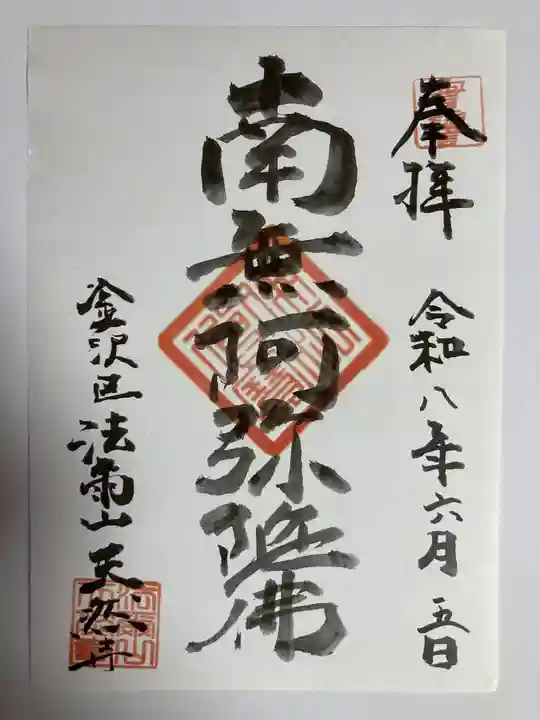 奉拝
令和八年六月五日
南無阿弥陀佛
金沢区法亀山天然寺